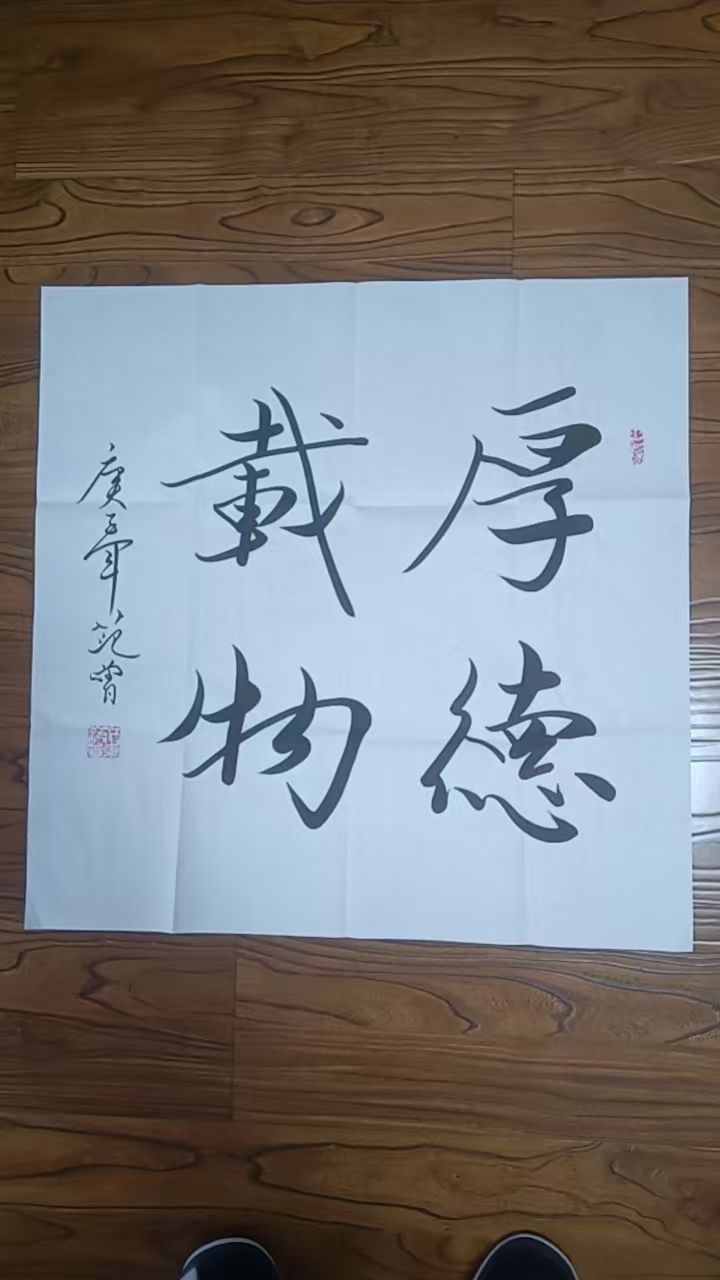 厚德
載物
庚寅年 范曾